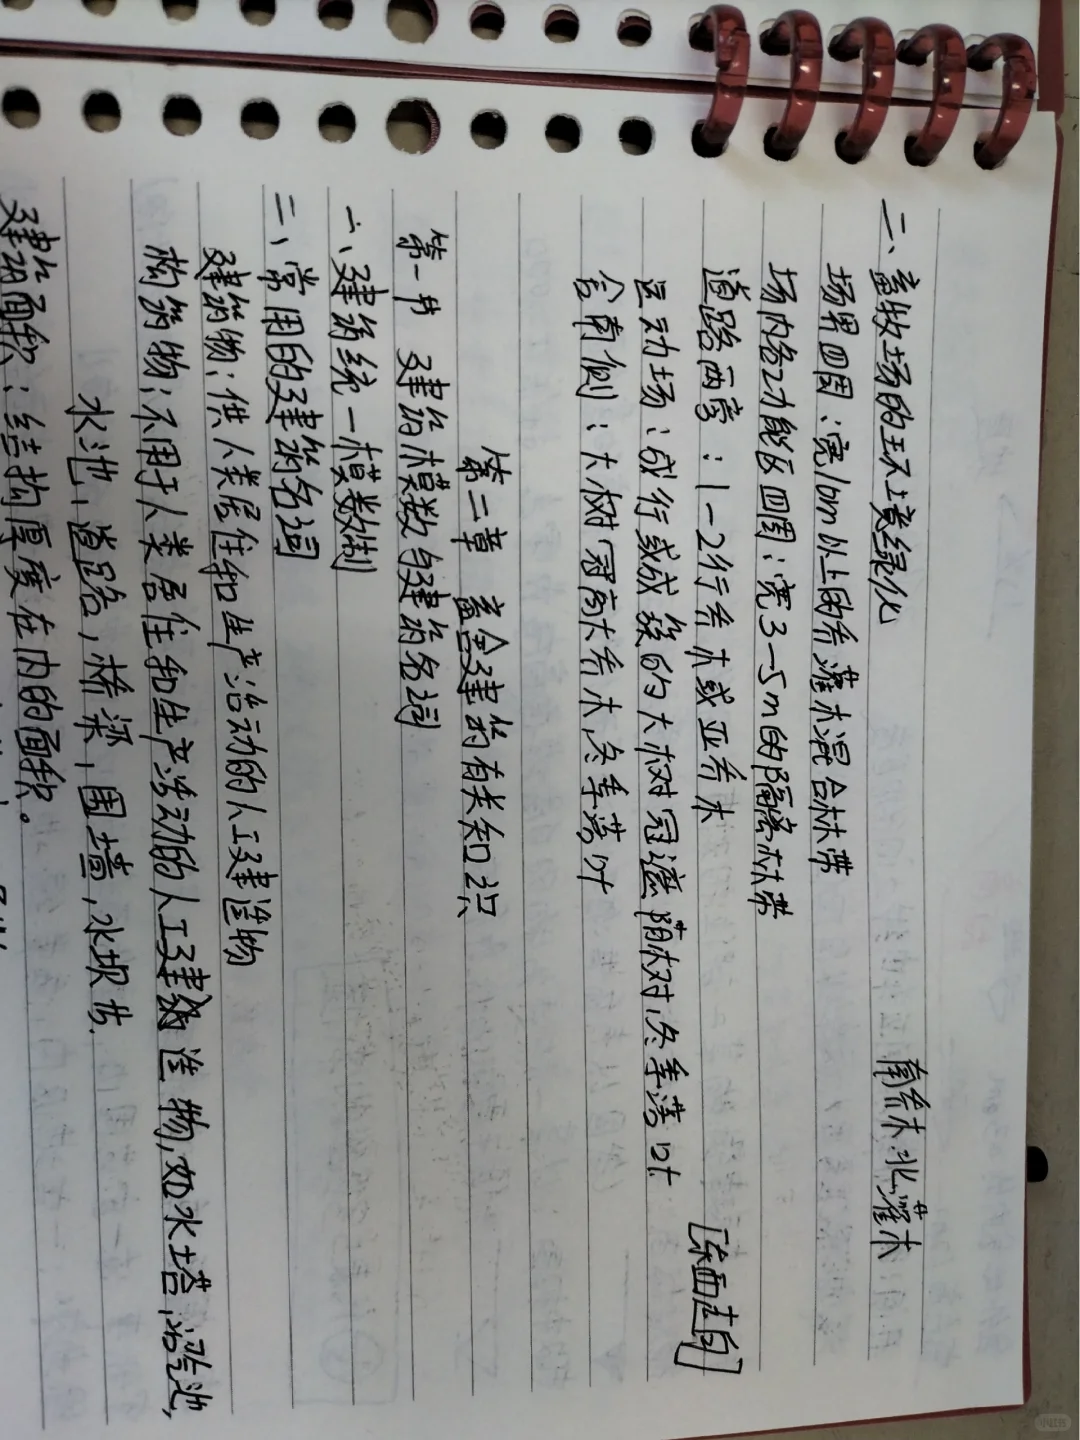 二、畜牧场的环境绿化
南乔木,北灌木
场界四周：宽10m以上的乔灌木混合林带
场内各功能区四周：宽3-5m的隔离林带
道路两旁：1-2行乔木或亚乔木
[东西走向]
运动场：成行或成簇的大树冠遮荫树,冬季落叶
舍南侧：大树冠高大乔木,冬季落叶
第二章 畜舍建筑的有关知识
第一节 建筑模数与建筑名词
一、建筑统一模数制
二、常用的建筑名词
建筑物：供人类居住和生产活动的人工建造物
构筑物：不用于人类居住和生产活动的人工建造物,如水塔,沼气池,
水池、道路,桥梁,围墙,水坝等.
建筑面积：结构厚度在内的面积。